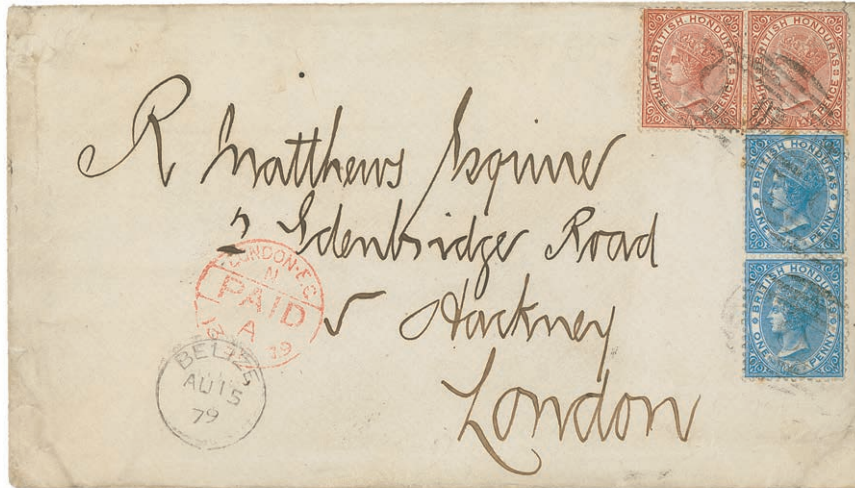 BRITISH HONDURAS
THREE PENCE
BRITISH HONDURAS
THREE PENCE
BRITISH HONDURAS
ONE PENNY
BRITISH HONDURAS
ONE PENNY
R Matthews Esquire
2 Edenbridge Road
Hackney
London
LONDON·E.C
N
PAID
A
79
BELIZE
AU 15
79